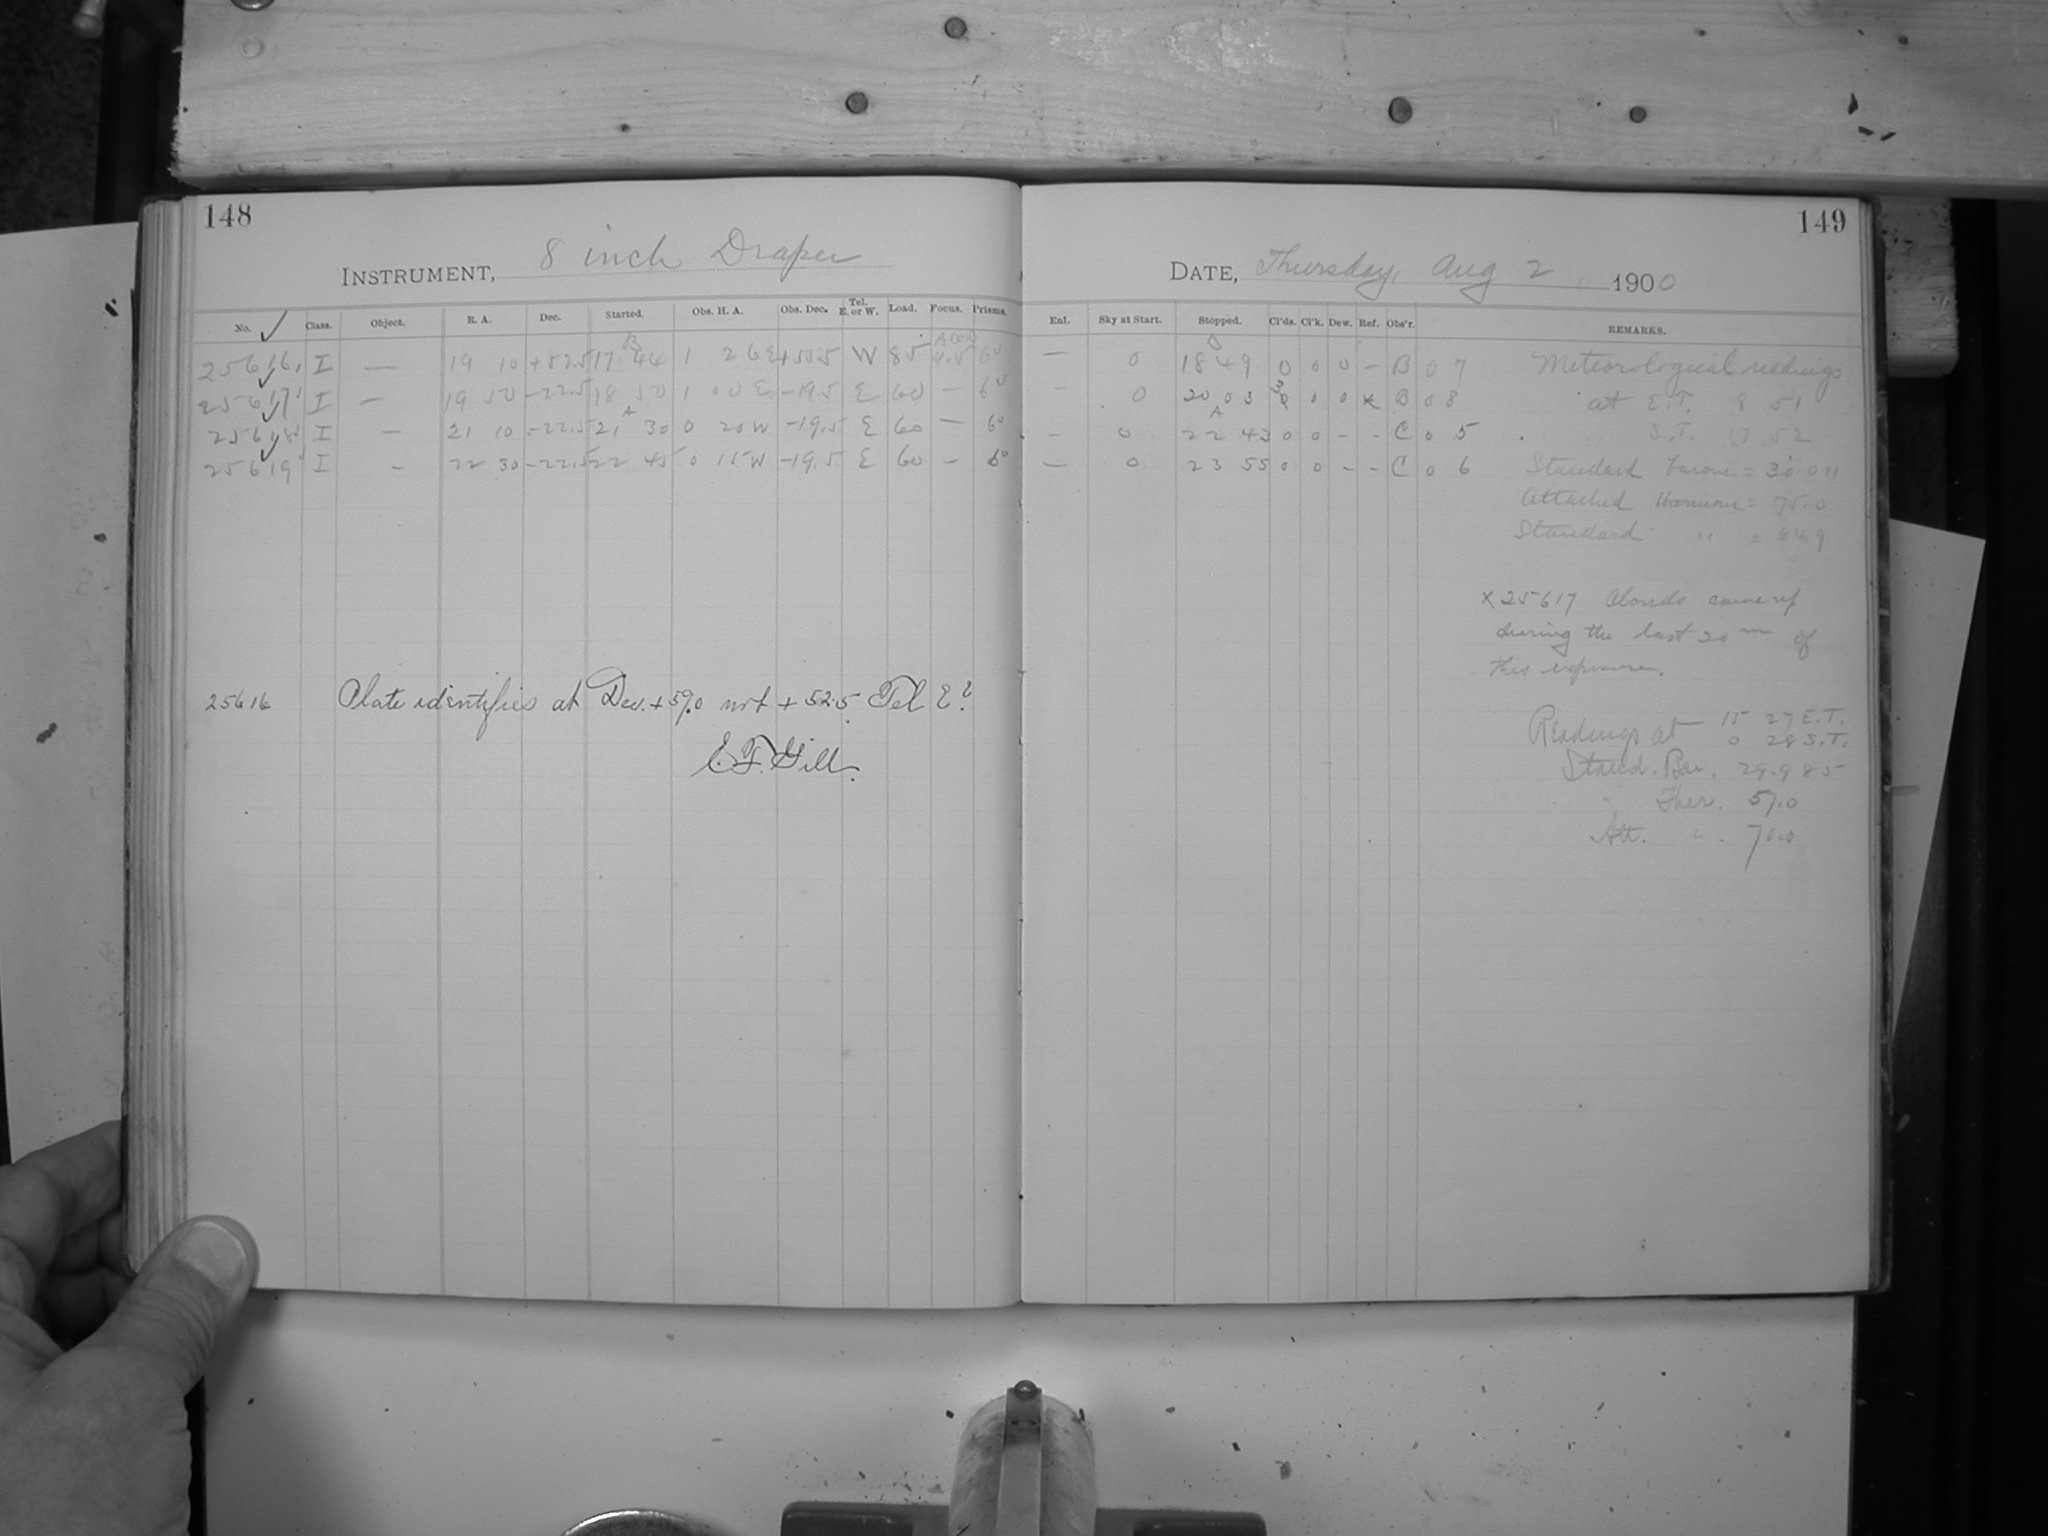 148
INSTRUMENT, 8 inch Draper
No. Class. Object. R. A. Dec. Started. Obs. H. A. Obs. Dec. Tel. E. or W. Load. Focus. Prisms.
25616 I — 19 10 +52.5 17 44 1 26 E W 85 60
25617 I — 19 50 -22.5 18 50 1 00 E -19.5 E 60 — 60
25618 I — 21 10 -22.5 21 30 0 20 W -19.5 E 60 — 60
25619 I — 22 30 -22.5 22 45 0 15 W -19.5 E 60 — 60
25616 Plate identifies at Dec. +57.0 not + 52.5 Tel E?
E. F. Gill.
149
DATE, Thursday, Aug 2 1900
Enl. Sky at Start. Stopped. Cl'ds. Cl'k. Dew. Ref. Obs'r. REMARKS.
— 0 18 49 0 0 0 — B 0 7 Meteorological readings
— 0 20 03 3 0 0 x B 0 8 at E.T. 8 51
— 0 22 43 0 0 - - C 0 5 S.T. 17 52
— 0 23 55 0 0 - - C 0 6 Standard barom. = 30.011
Attached = 75.0
Standard " = 64.9
x 25617 Clouds came up
during the last 20 m of
this exposure.
Readings at 15 27 E.T.
0 28 S.T.
Stand. Bar. 29.985
Ther. 57.0
Att. " 70.0